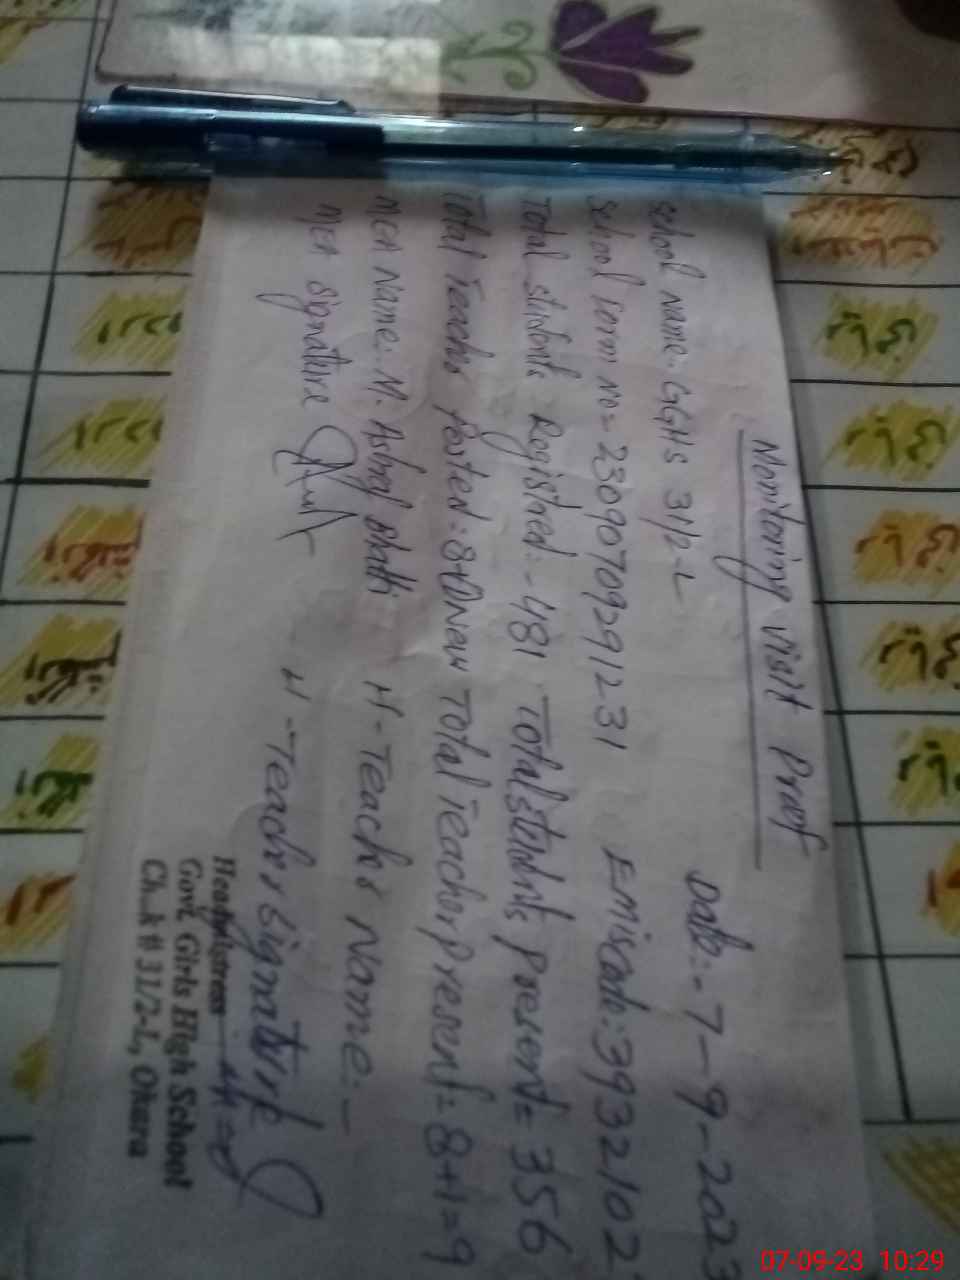 Monitoring Visit Proof
Date:- 7-9-2023
School Name: GGHS 31/2-L
School Form No = 23090709291231 Emiscode: 3932102
Total Students Registred:- 481 Total students Present = 356
Total Teachs Posted: 8+ Total Teacher Present = 8+1=9
MEA Name: M. H-Teachs Name:-
MEA Signature H-Teachr signature
Headmistress
Govt. Girls High School
Ch.k # 31/2-L, Okara
07-09-23 10:29